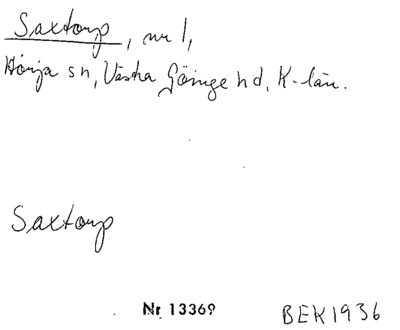 Saxtorp, nr 1,
Hörja sn, Västra Göinge hd, K-län.
Saxtorp
Nr 13369
BEK1936